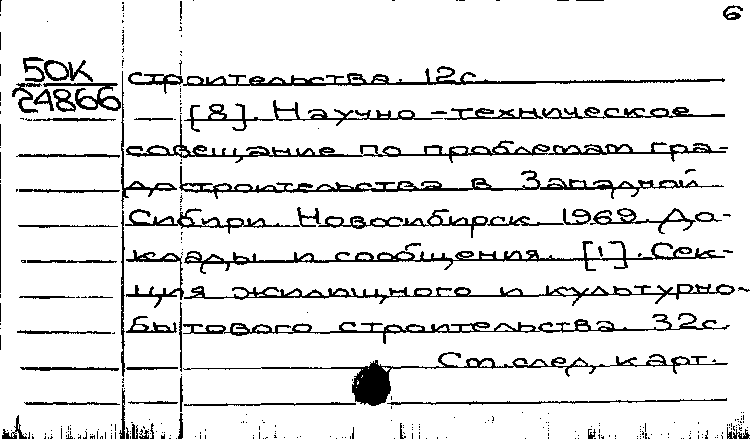 6
50К
24866
строительства. 12с.
— [8]. Научно-техническое
совещание по проблемам гра-
достроительства в Западной
Сибири. Новосибирск. 1969. До-
клады и сообщения. [1]. Сек-
ция жилищного и культурно-
бытового строительства. 32с.
См. след. карт.